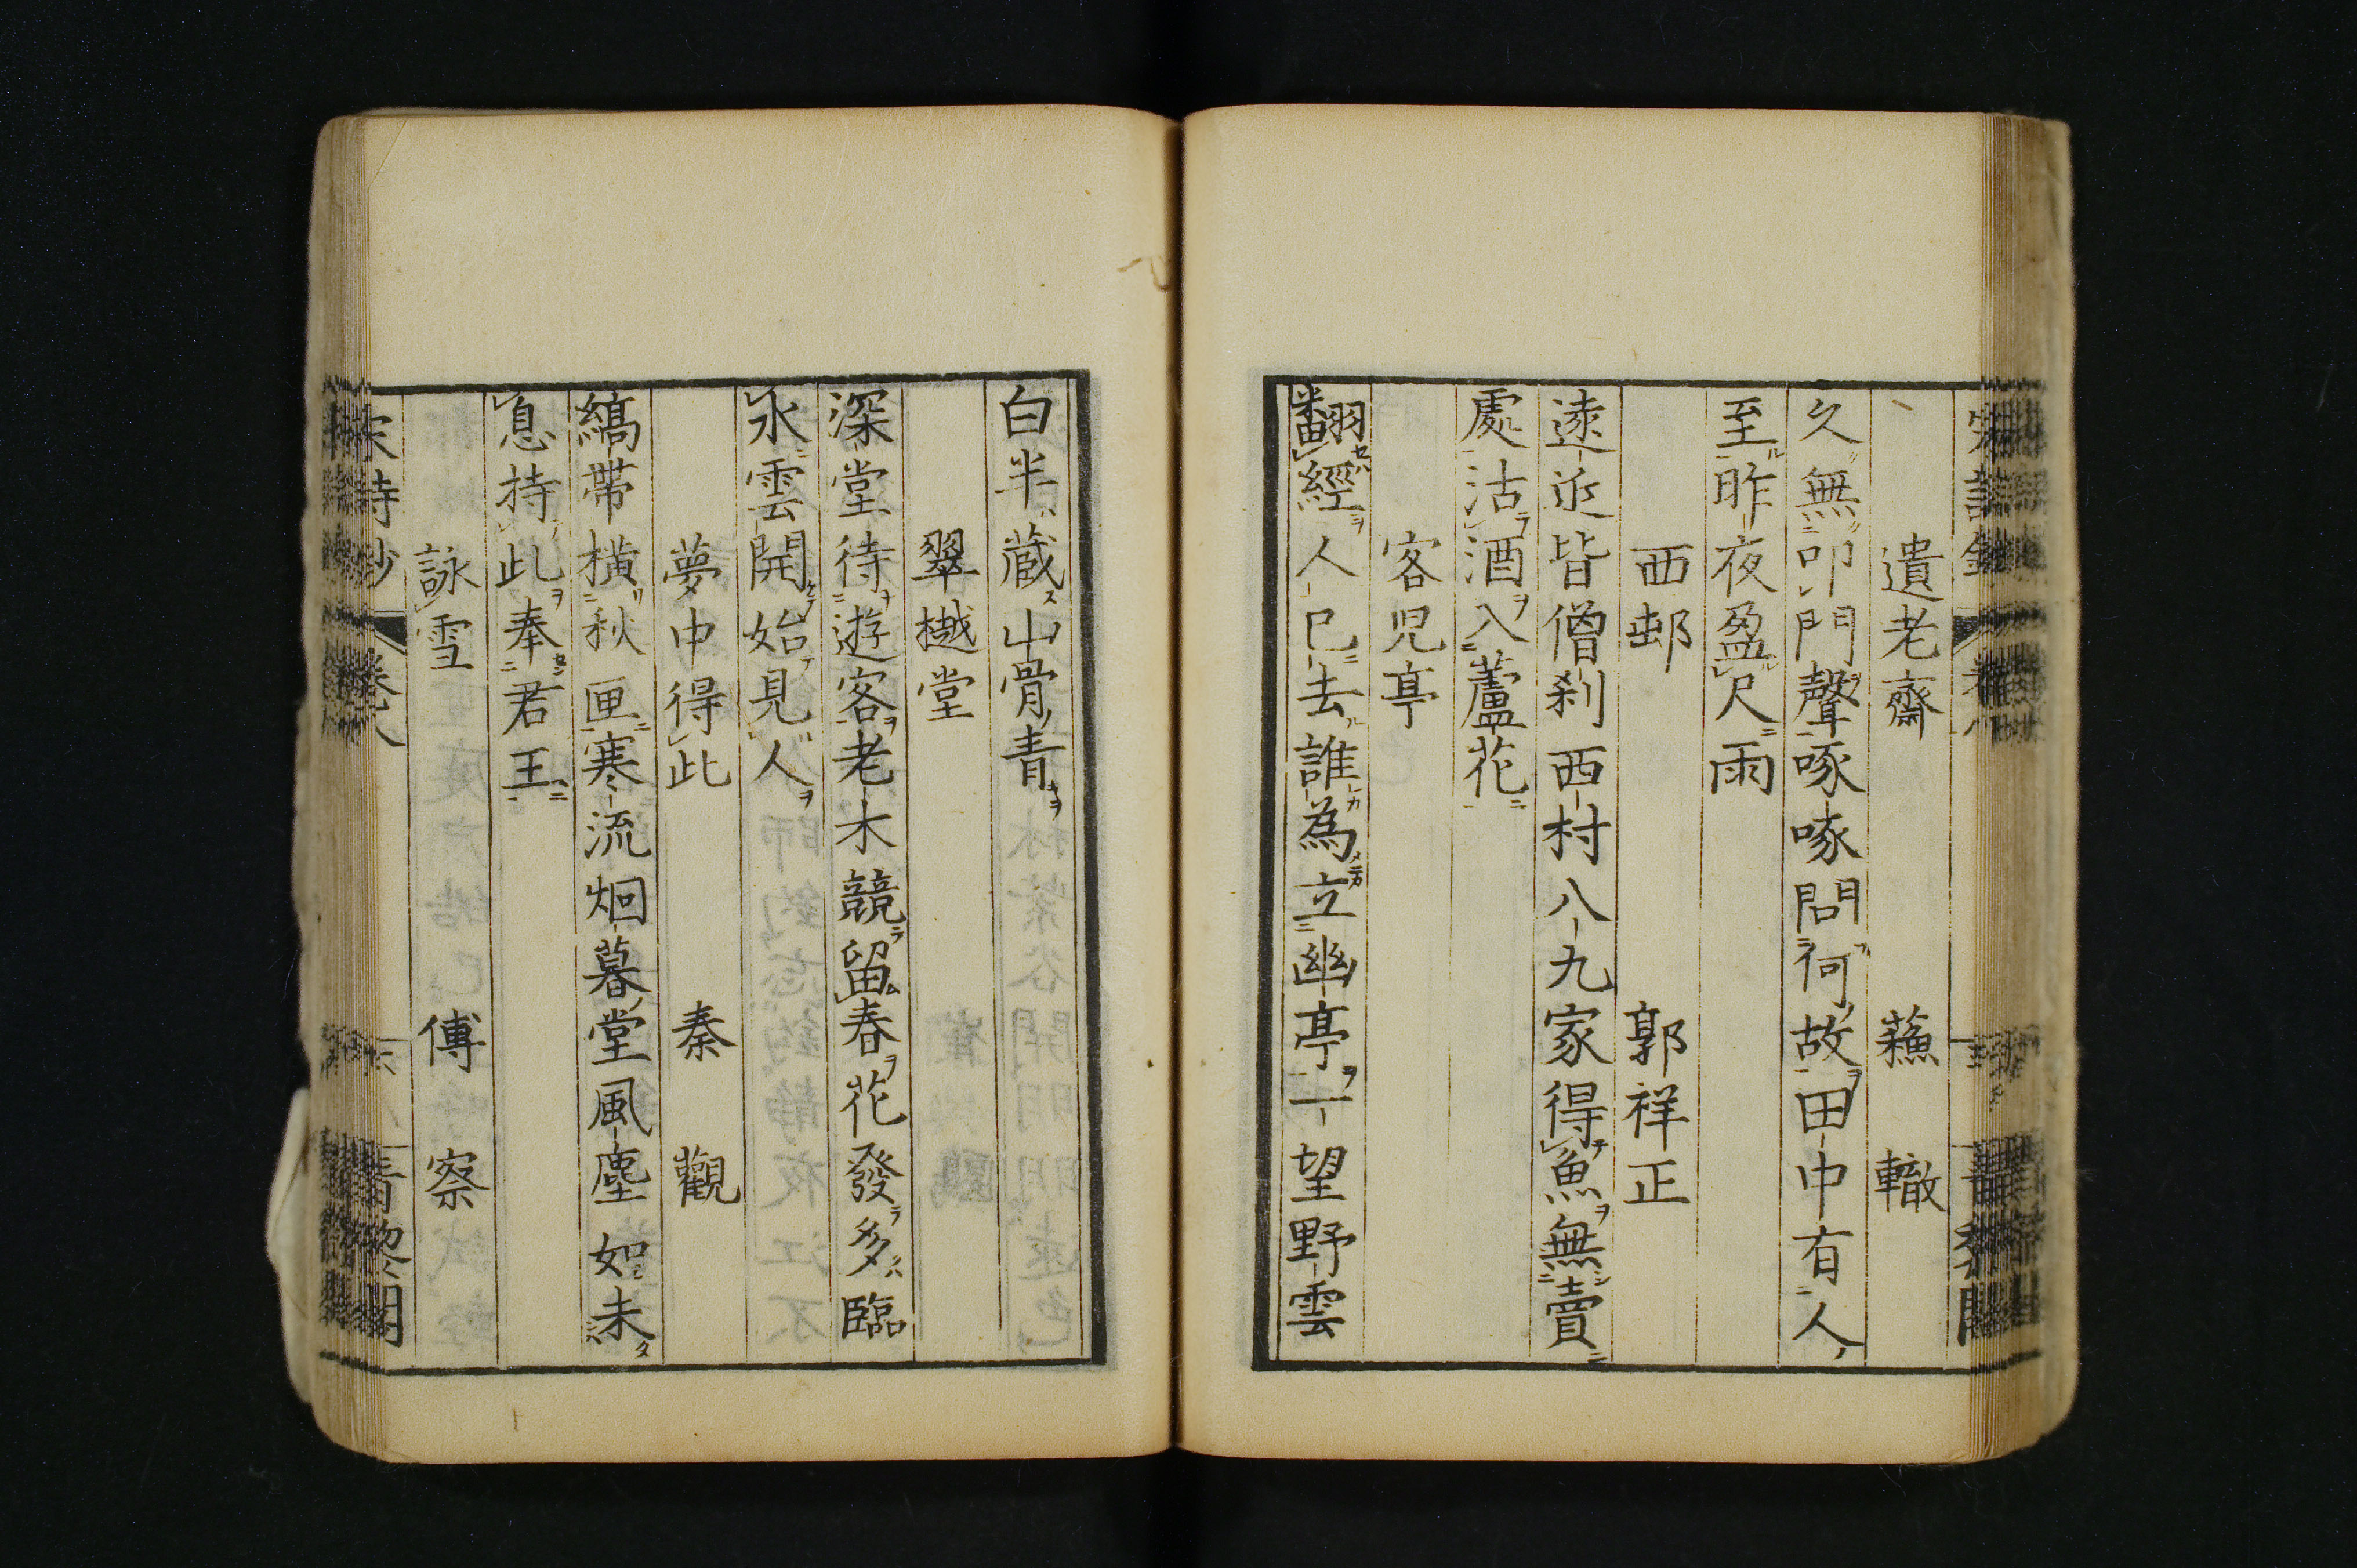 遺老齋 蘓轍
久無叩門聲啄啄問何故田中有人
至昨夜盈尺雨
西邨 郭祥正
遠近皆僧刹西村八九家得魚無賣
處沽酒入蘆花
客児亭
翻經人已去誰為立幽亭一望野雲
白半蔵山骨青
翠樾堂
深堂待遊客老木競留春花發多臨
水雲開始見人
夢中得此 秦觀
縞帶横秋匣寒流炯暮堂風塵如未
息持此奉君王
詠雪 傅察
宋詩鈔 卷八 青黎閣